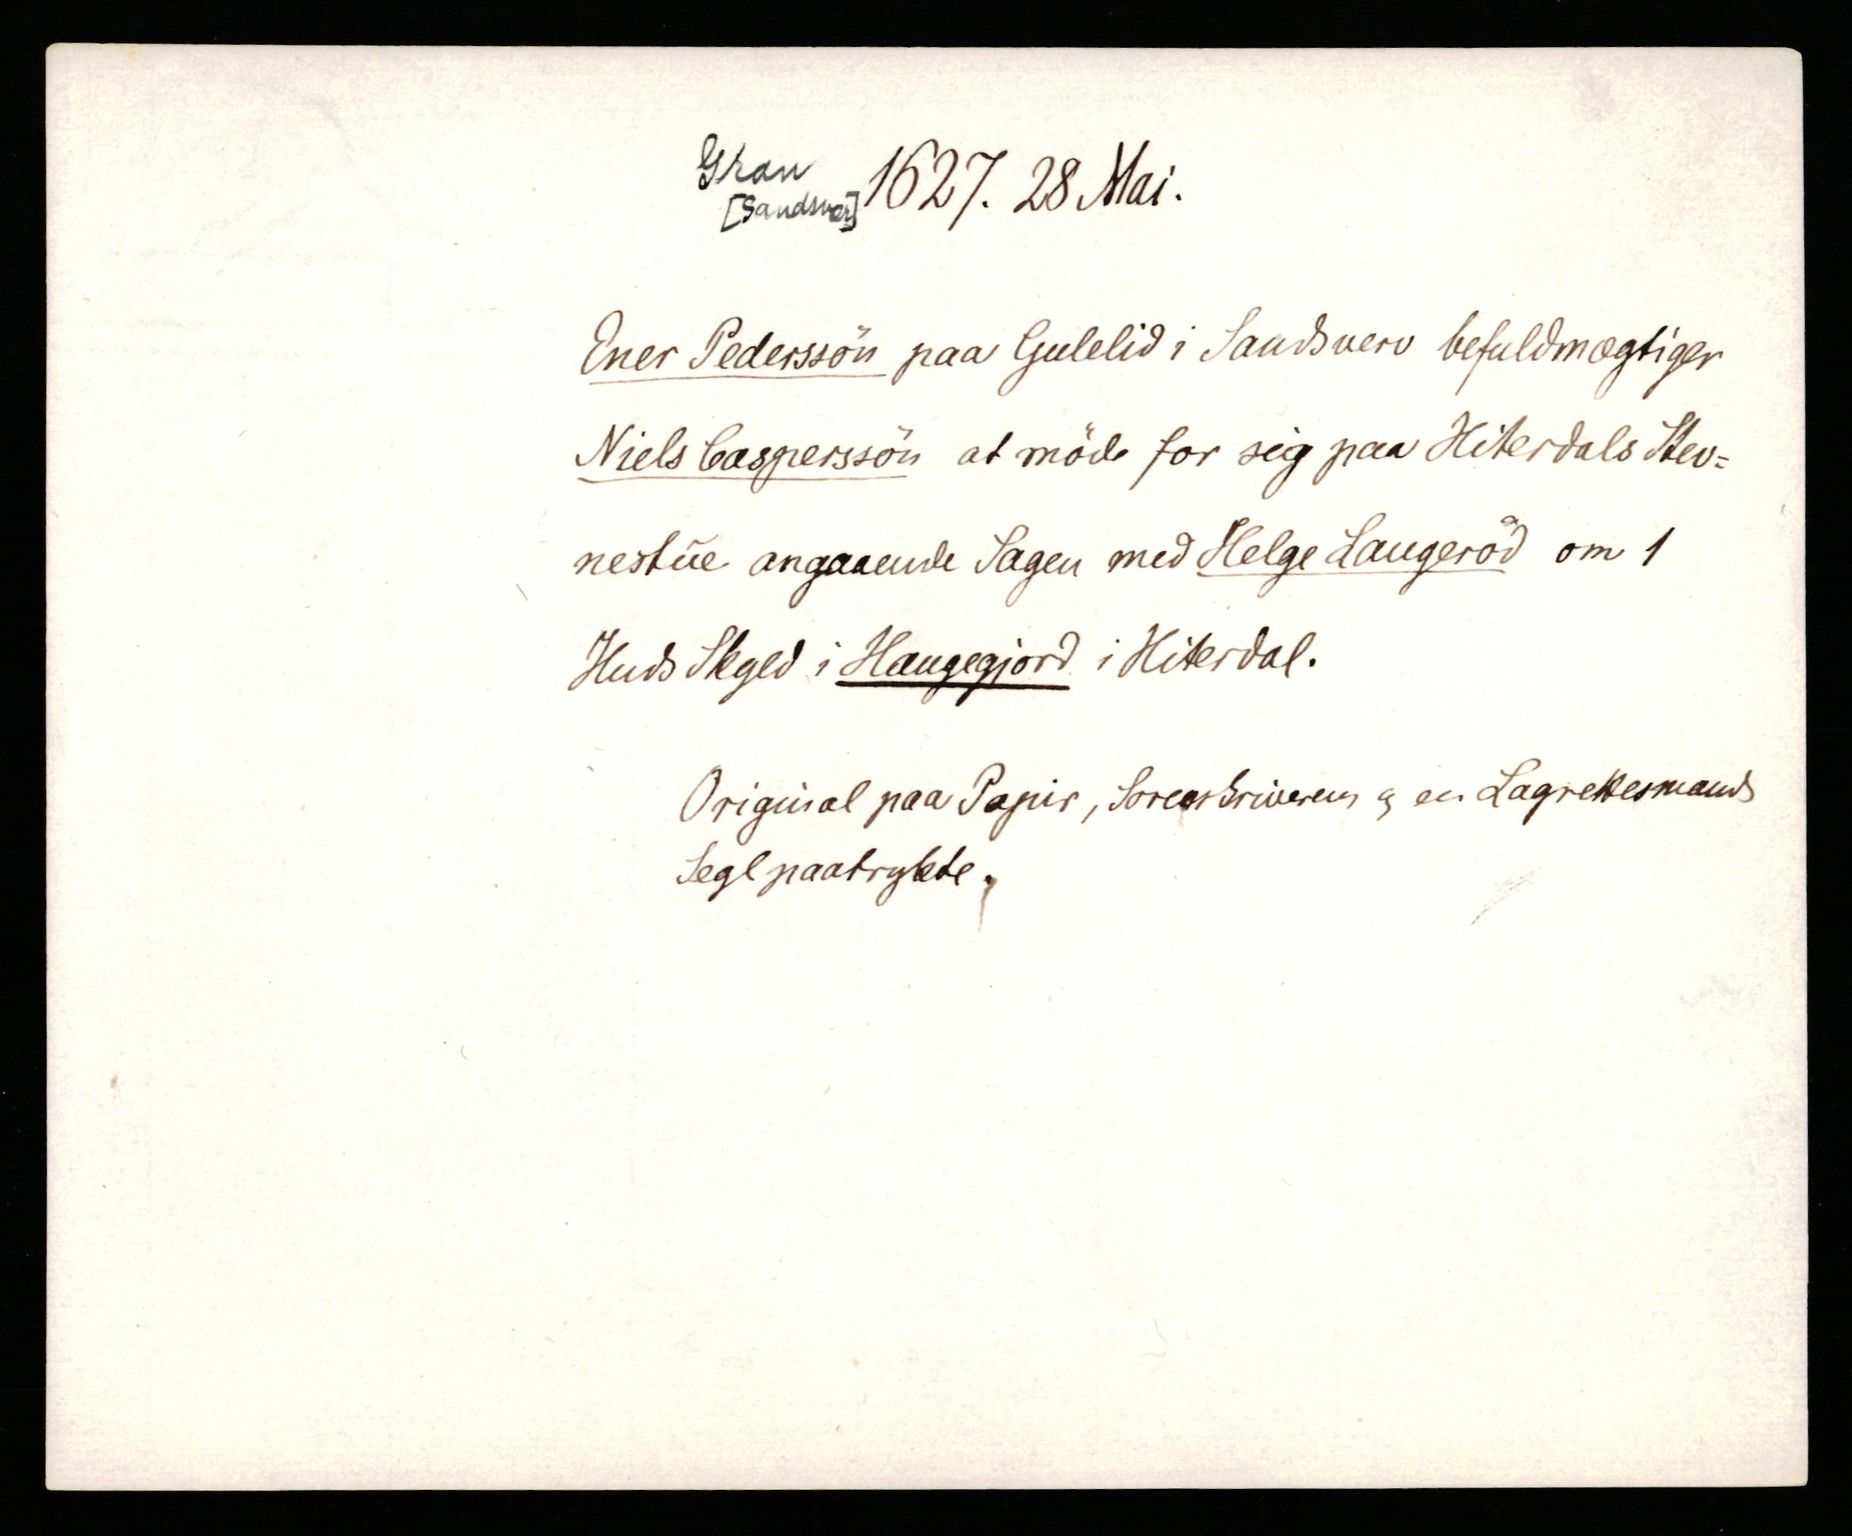 Gran 1627. 28 Mai.
[Sandsver]
Ener Pederssön paa Gulelid i Sandsverv befuldmægtiger
Niels Casperssön at möde for sig paa Hiterdals Stev=
nestüe angaaende Sagen med Helge Laugeröd om 1
Huds Skyld i Haugegjord i Hiterdal.
Original paa Papir, Sorenskriverens og en Lagrettesmands
Segl paatrykte.